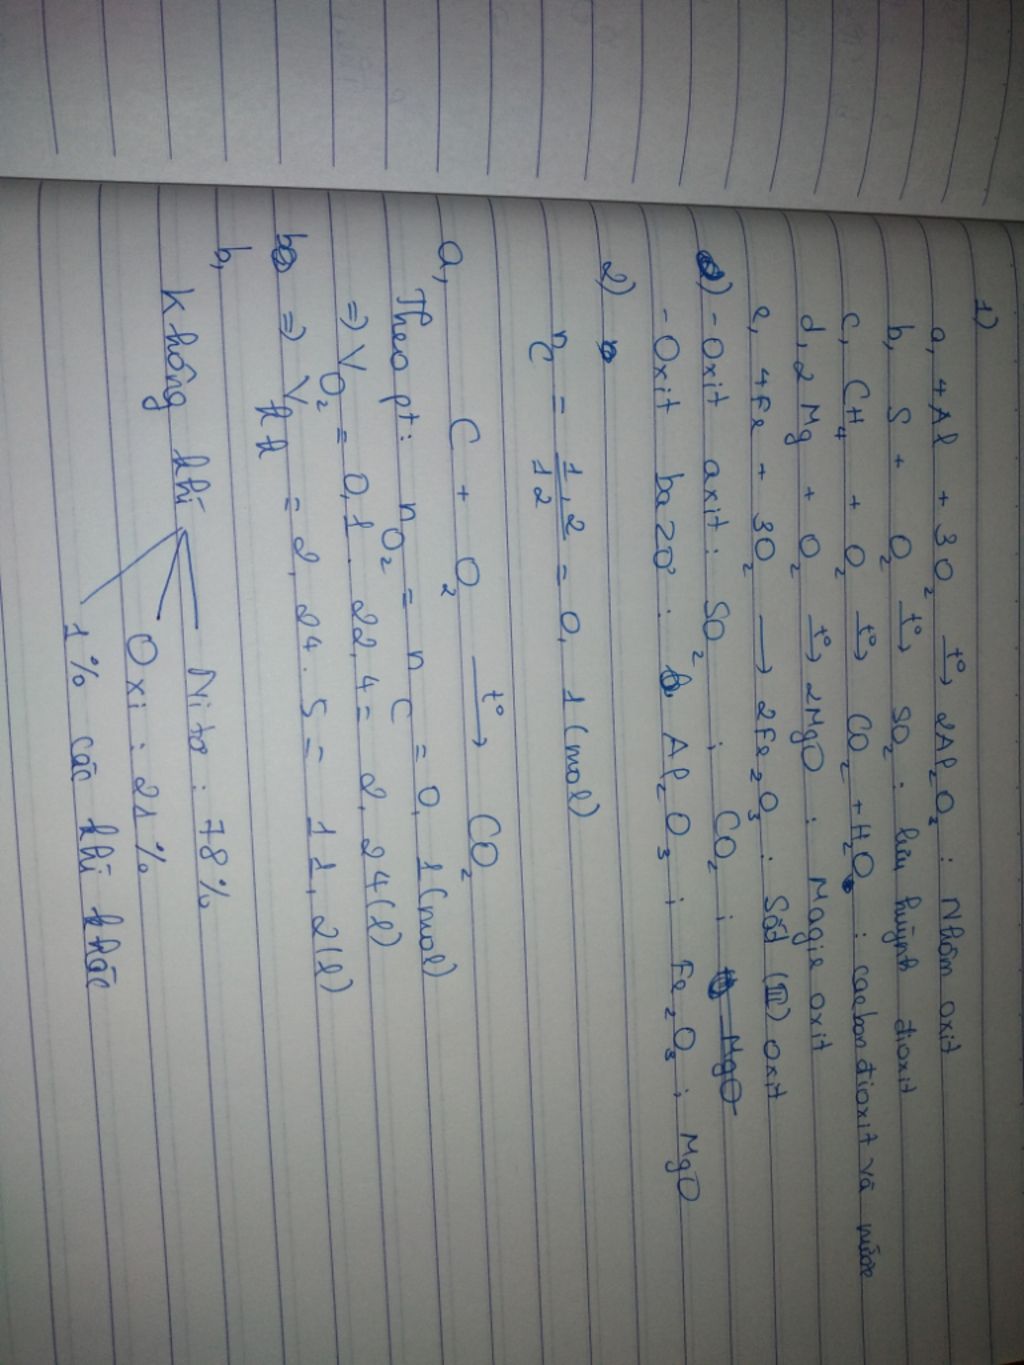 1)
a, 4Al + 3O₂ —t°→ 2Al₂O₃ : Nhôm oxit
b, S + O₂ —t°→ SO₂ : lưu huỳnh đioxit
c, CH₄ + O₂ —t°→ CO₂ + H₂O : cacbon đioxit và nước
d, 2Mg + O₂ —t°→ 2MgO : Magie oxit
e, 4Fe + 3O₂ —→ 2Fe₂O₃ : Sắt (III) oxit
- Oxit axit : SO₂ ; CO₂ ; MgO
- Oxit bazơ : Al₂O₃ ; Fe₂O₃ ; MgO
2)
n_C = 1,2/12 = 0,1 (mol)
a, C + O₂ —t°→ CO₂
Theo pt : n_O₂ = n_C = 0,1 (mol)
=> V_O₂ = 0,1 . 22,4 = 2,24 (l)
=> V_kk = 2,24 . 5 = 11,2 (l)
b,
Không khí
Nitơ : 78%
Oxi : 21%
1% các khí khác